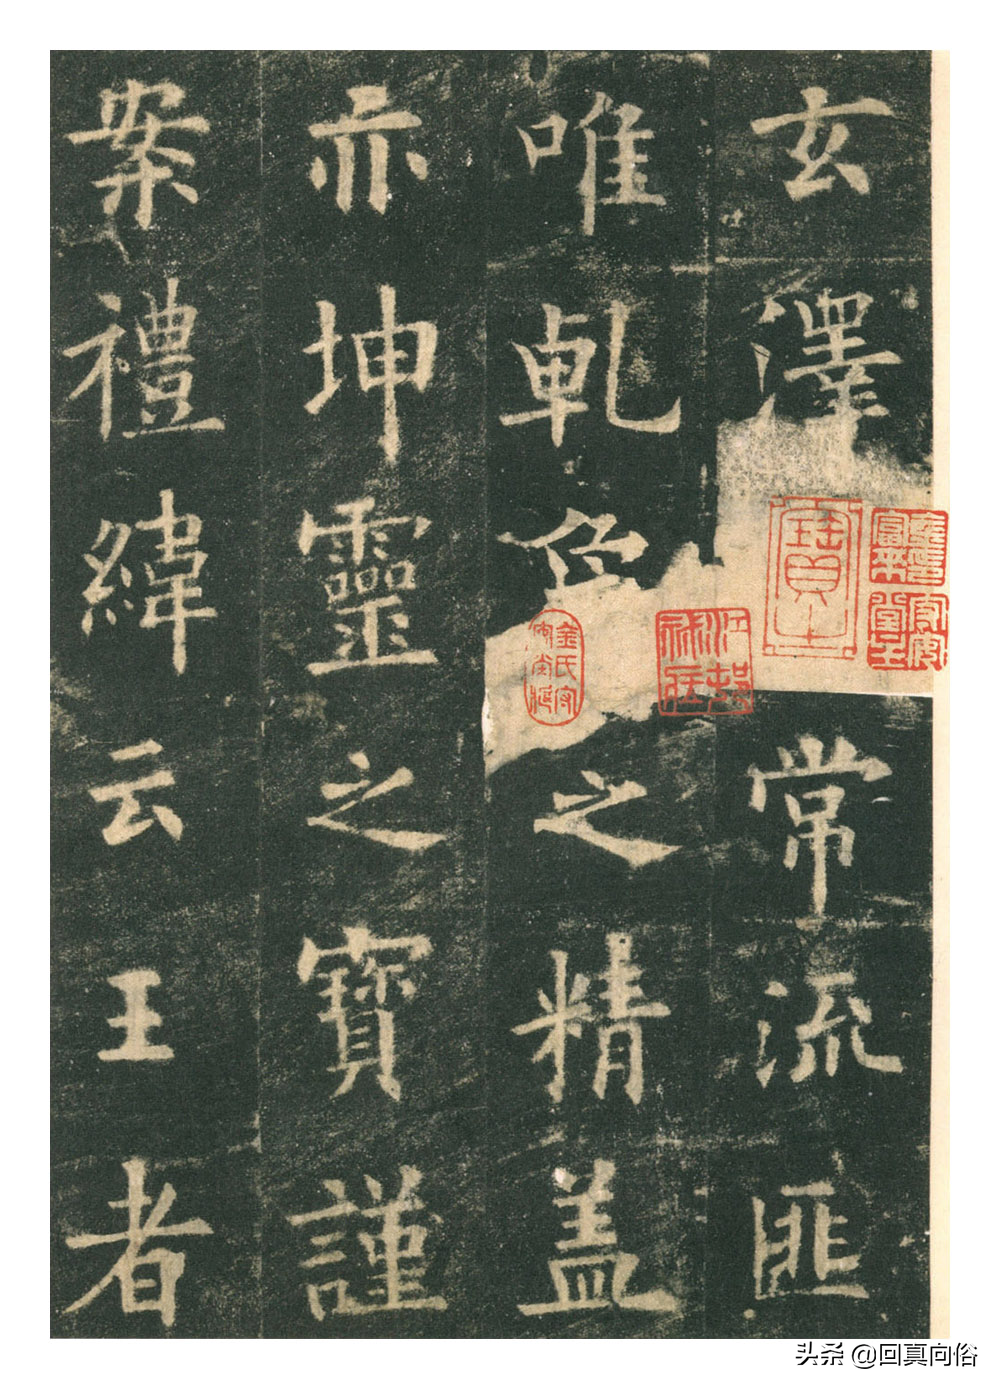 玄澤常流匪
唯乹之精盖
亦坤靈之寶謹
案禮緯云王者
頭条 @回真向俗